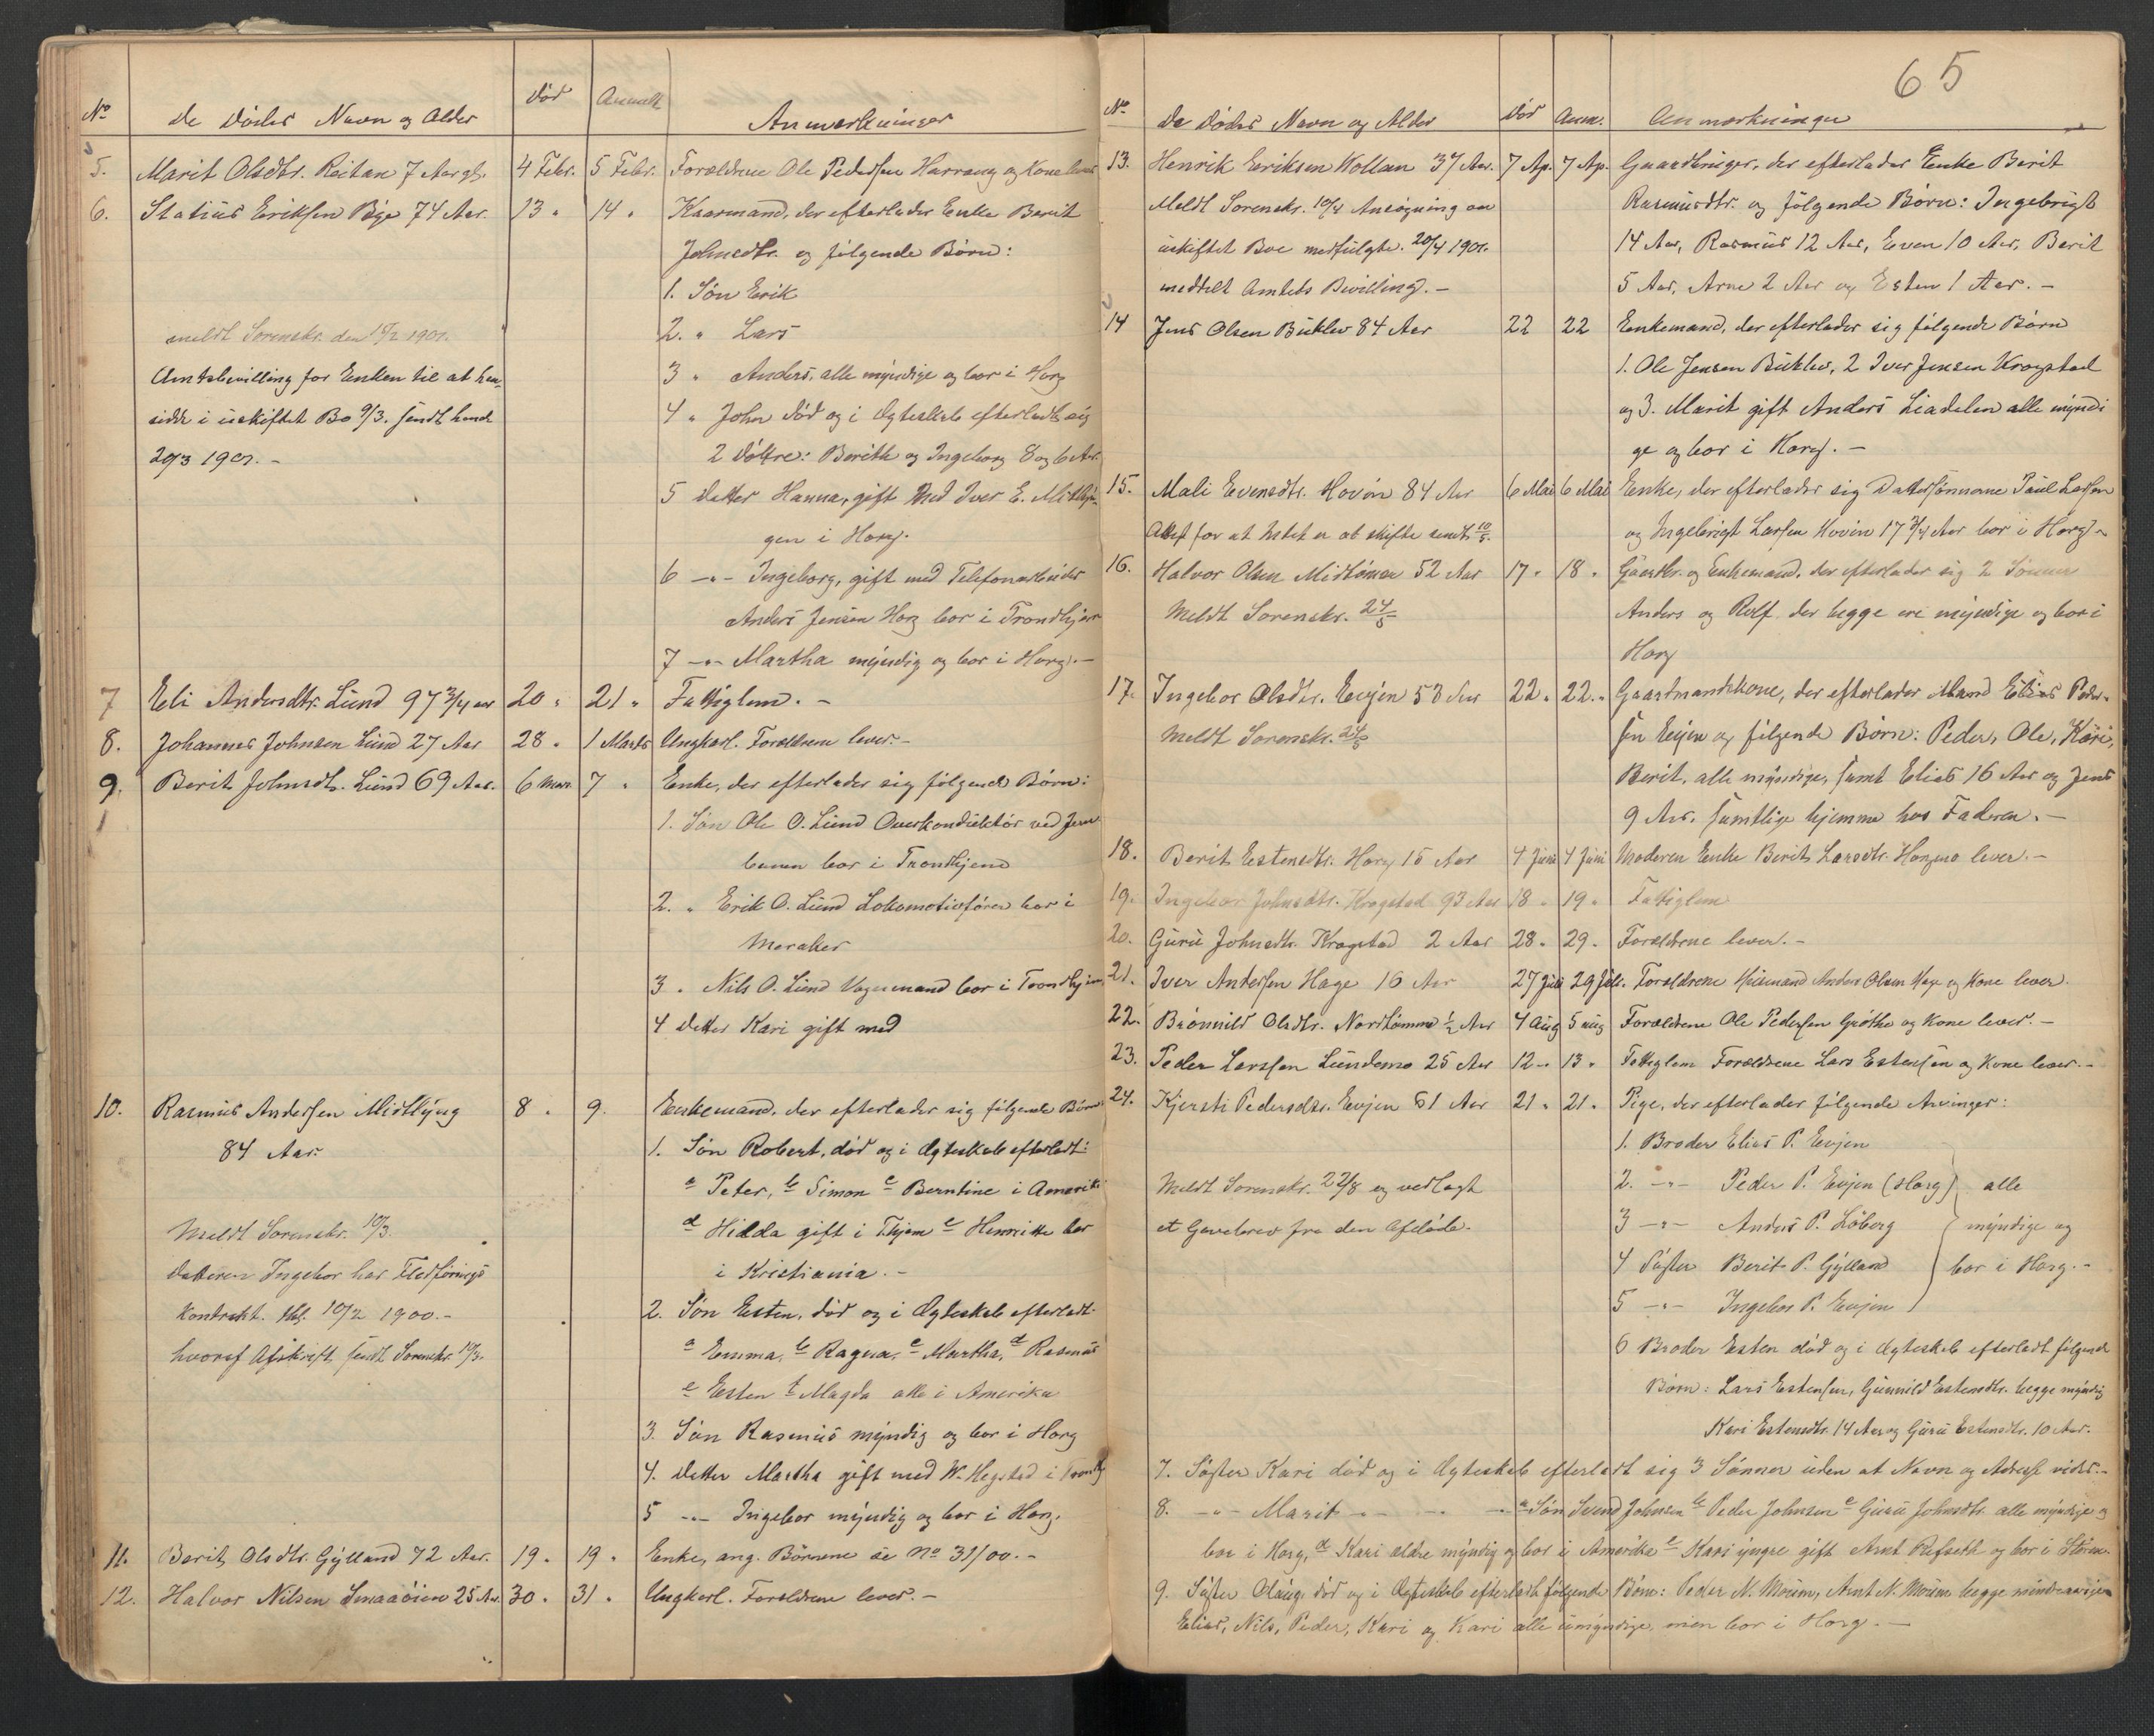 No
De Dødes Navn og Alder
Død
Anmeldt
Anmærkninger
5. Marit Olsdtr. Reitan 7 Aar gl. 4 Febr. 5 Febr. Forældrene Ole Pedersen Harrang og Kone lever
6. Statius Eriksen Bye 74 Aar. 13 " 14 " Kaarmand, der efterlader Enke Berit
Johnsdtr. og følgende Børn:
1. Søn Erik
meldt Sorenskr. den 15/2 1901. 2. " Lars
Amtsbevilling for Enken til at hen- 3 " Anders, alle myndige og bor i Horg
sidde i uskiftet Bo 9/3. sendt hende 4 " John død og i Ægteskab efterladt sig
20/3 1901.- 2 Døttre: Berith og Ingeborg 8 og 6 Aar.
5 Datter Hanna, gift med Iver E. Midtlyn-
gen i Horg.
6 -"- Ingeborg, gift med Telefonarbeider
Anders Jensen Horg bor i Trondhjem
7 -"- Martha myndig og bor i Horg.-
7 Eli Andersdtr. Lund 97 3/4 aar 20 " 21 " Fattiglem.-
8. Johannes Johnsen Lund 27 Aar 28 " 1 Marts Ungkarl. Forældrene lever.-
9. Berit Johnsdtr. Lund 69 Aar. 6 Mars 7 " Enke, der efterlader sig følgende Børn:
1. Søn Ole O. Lund Overkonduktør ved Jern
banen bor i Trondhjem
2. " Erik O. Lund Lokomotivfører bor i
Meraker
3 " Nils O. Lund Vognmand bor i Trondhjem
4 Datter Kari gift med
10. Rasmus Andersen Midtlyng 8 " 9. Enkemand, der efterlader sig følgende Børn:
84 Aar. 1. Søn Robert, død og i Ægteskab efterladt:
a Peter, b Simon c Berntine i Amerika
Meldt Sorenskr. 10/3. d Hilda gift i Thjem e Henrikke bor
Datteren Ingebor har Fledførings i Kristiania.-
Kontrakt. thl. 10/2 1900.- 2. Søn Esten, død og i Ægteskab efterladt.
hvoraf Afskrift sendt Sorenskr. 10/3. a Emma, b Ragna, c Martha, d Rasmus
e Esten f Magda alle i Amerika
3. Søn Rasmus myndig og bor i Horg
4. Datter Martha gift med W. Hegstad i Trondhj
5 -"- Ingebor myndig og bor i Horg.
11. Berit Olsdtr. Gylland 72 Aar. 19 " 19 " Enke, ang. Børnene se No 31/00.-
12. Halvor Nilsen Smaaøien 25 Aar. 30 " 31 " Ungkarl. Forældrene lever.-
65
No
De Dødes Navn og Alder
Død
Anm.
Anmærkninger
13. Henrik Eriksen Wollan 37 Aar. 7 Ap. 7 Ap. Gaardbruger, der efterlader Enke Berit
Meldt Sorenskr. 10/4 Ansøgning om Rasmusdtr. og følgende Børn: Ingebrigt
uskiftet Boe medfulgte. 20/4 1901. 14 Aar, Rasmus 12 Aar, Even 10 Aar, Berit
meddelt Amtets Bevilling.- 5 Aar, Arne 2 Aar og Esten 1 Aar.-
14 Jens Olsen Buklev 84 Aar 22 22 Enkemand, der efterlader sig følgende Børn
1. Ole Jensen Buklev, 2 Iver Jensen Krogstad
og 3. Marit gift Anders Liadalen alle myndi
ge og bor i Horg.-
15. Mali Evensdtr. Hovin 84 Aar 6 Mai 6 Mai Enke, der efterlader sig Dattersønnerne Paul Larsen
Attest for at Intet er at skifte sendt 10/5. og Ingebrigt Larsen Hovin 17 3/4 Aar bor i Horg.-
16. Halvor Olsen Midtømer 52 Aar 17 " 18 " Gaardbr. og Enkemand, der efterlader sig 2 Sønner
Meldt Sorenskr. 24/5 Anders og Rolf der begge ere myndige og bor i
Horg
17. Ingebor Olsdtr. Evjen 53 Aar 22 " 22 " Gaardmandskone, der efterlader Mand Elias Peder-
Meldt Sorenskr. 24/5 sen Evjen og følgende Børn: Peder, Ole, Kari,
Berit, alle myndige, samt Elias 16 Aar og Jens
9 Aar. samtlige hjemme hos Faderen.-
18. Berit Estensdtr. Horg 15 Aar 4 Juni 4 Juni Moderen Enke Berit Larsdtr. Horgmo lever.-
19. Ingebor Johnsdtr. Krogstad 93 Aar 18 " 19 " Fattiglem
20. Guru Johnsdtr. Krogstad 2 Aar 28 " 29 " Forældrene lever.-
21. Iver Andersen Hage 16 Aar 27 Juli 29 Juli. Forældrene Husmand Anders Olsen Hage og Kone lever.
22. Brønnild Olsdtr. Nordtømme 1/2 Aar 4 Aug 5 aug Forældrene Ole Pedersen Grøthe og Kone lever.-
23. Peder Larssen Lundemo 25 Aar 12 - 13 " Fattiglem Forældrene Lars Estensen og Kone lever.-
24. Kjersti Pedersdtr. Evjen 61 Aar 21 " 21 " Pige, der efterlader følgende Arvinger:
1. Broder Elias P. Evjen
Meldt Sorenskr. 22/8 og vedlagt 2. -"- Peder P. Evjen (Horg) alle
et Gavebrev fra den Afdøde. 3 -"- Anders P. Løberg myndige og
4 Søster Berit P. Gylland bor i Horg.-
5 -"- Ingebor P. Evjen
6 Broder Esten død og i Ægteskab efterladt følgende
Børn: Lars Estensen, Gunnild Estensdtr. begge myndig
Kari Estensdtr. 14 Aar og Guru Estensdtr. 10 Aar.
7. Søster Kari død og i Ægteskab efterladt sig 3 Sønner uden at Navn og Adresse vides.-
8. -"- Marit -"- - - a Søn Svend Johnsen b Peder Johnsen c Guru Johnsdtr. alle myndige og
bor i Horg, d Kari ældre myndig og bor i Amerika e Kari yngre gift Arnt Refseth og bor i Støren.
9. Søster Olaug, død og i Ægteskab efterladt følgende Børn: Peder N. Moum, Arnt N. Moum begge
Elias, Nils, Peder, Kari og Kari alle umyndige, men bor i Horg.-